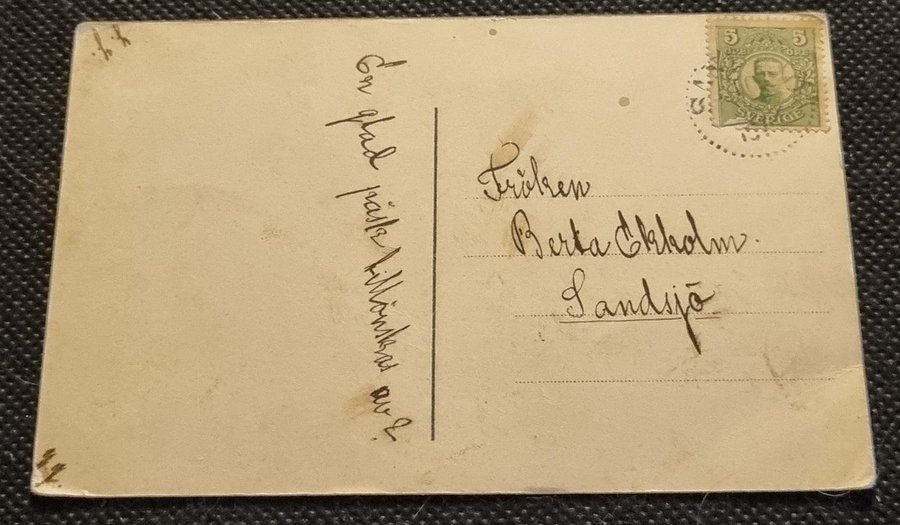 En glad påsk tillönskas av ?.
Fröken
Berta Ekholm.
Sandsjö
5 5
SVERIGE